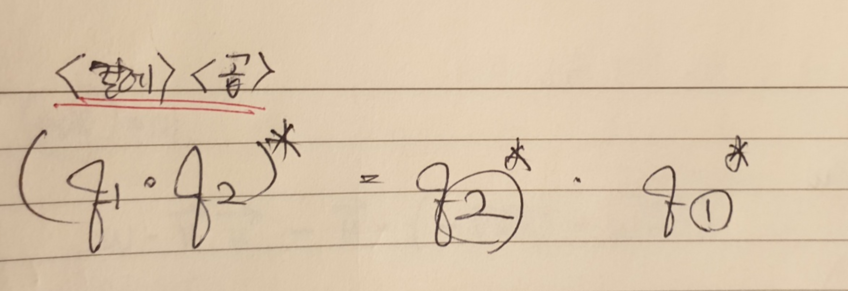 <켤레> <곱>
(q₁·q₂)* = q②* · q①*